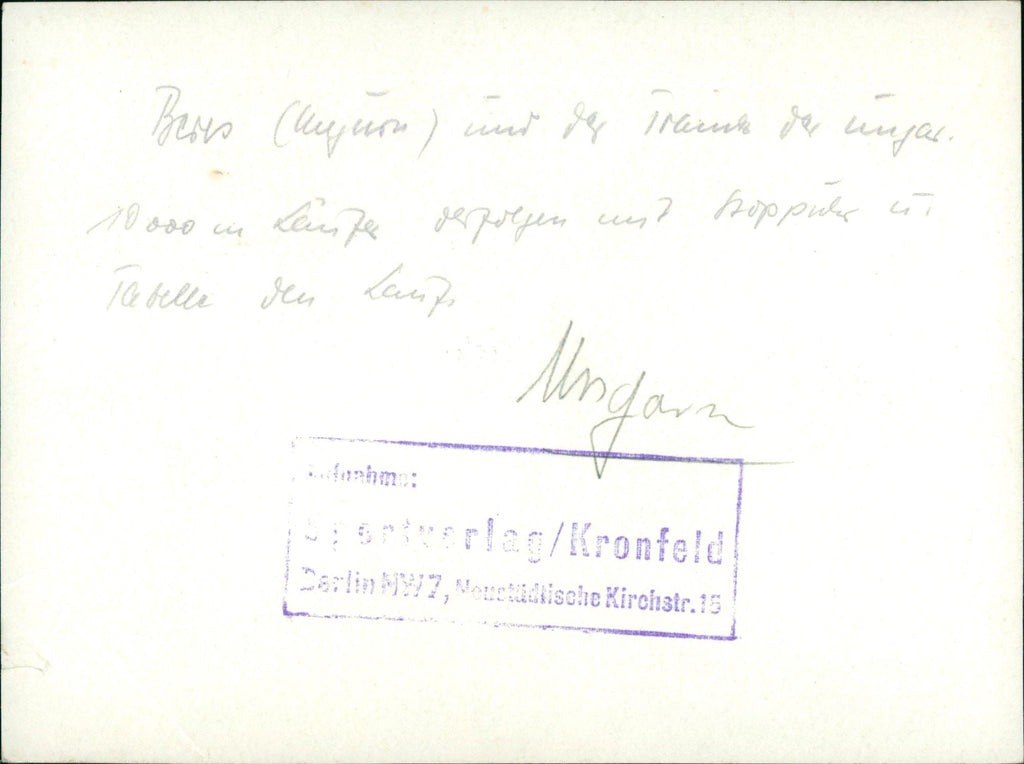 Beres (Ungarn) und der Trainer der ungar.
10 000 m Läufer verfolgen mit Stoppuhr u.
Tabelle den Lauf.
Ungarn
Aufnahme:
Sportverlag/Kronfeld
Berlin NW7, Neustädtische Kirchstr. 15